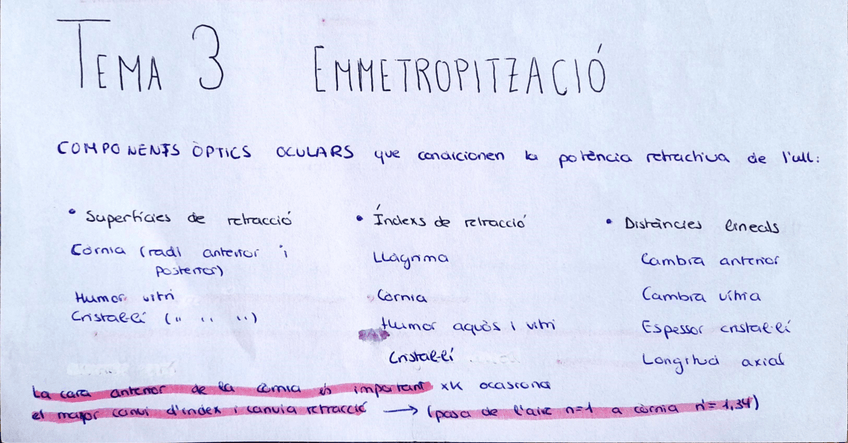 TEMA 3 EMMETROPITZACIÓ
COMPONENTS ÒPTICS OCULARS que condicionen la potència refractiva de l'ull:
• Superfícies de refracció
Còrnia (radi anterior i
posterior)
Humor vitri
Cristal·lí (" " ")
• Índexs de refracció
Llàgrima
Còrnia
Humor aquòs i vitri
Cristal·lí
• Distàncies lineals
Cambra anterior
Cambra vítria
Espessor cristal·lí
Longitud axial
La cara anterior de la còrnia és important xk ocasiona
el major canvi d'índex i canvia refracció → (pasa de l'aire n=1 a còrnia n'=1,34)